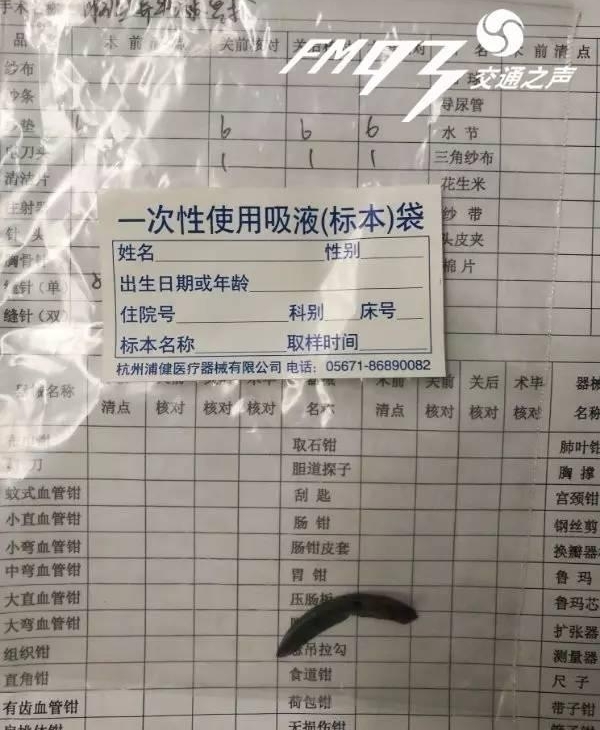 FM93 交通之声
手术名称
品 术前清点 关前核对 关后核对 核对 名 术前清点
纱布 球
纱条 导尿管
垫 6 6 6 水节
刀头 1 1 1 三角纱布
清洁片 花生米
注射器 纱带
针头 头皮夹
胸骨 棉片
缝针（单）
缝针（双）
一次性使用吸液(标本)袋
姓名 性别
出生日期或年龄
住院号 科别 床号
标本名称 取样时间
杭州浦健医疗器械有限公司 电话：05671-86890082
器械名称 术前清点 关前核对 核对 术毕核对 器械名称 术前清点 关前核对 关后核对 术毕核对 器械名称
取石钳 肺叶钳
刀 胆道探子 胸撑
蚊式血管钳 刮匙 宫颈钳
小直血管钳 肠钳 钢丝剪
小弯血管钳 肠钳皮套 换瓣器
中弯血管钳 胃钳 鲁玛
大直血管钳 压肠板 鲁玛芯
大弯血管钳 扩张器
组织钳 悬吊拉勾 测量器
直角钳 食道钳 尺子
有齿血管钳 荷包钳 带子钳
无损伤钳